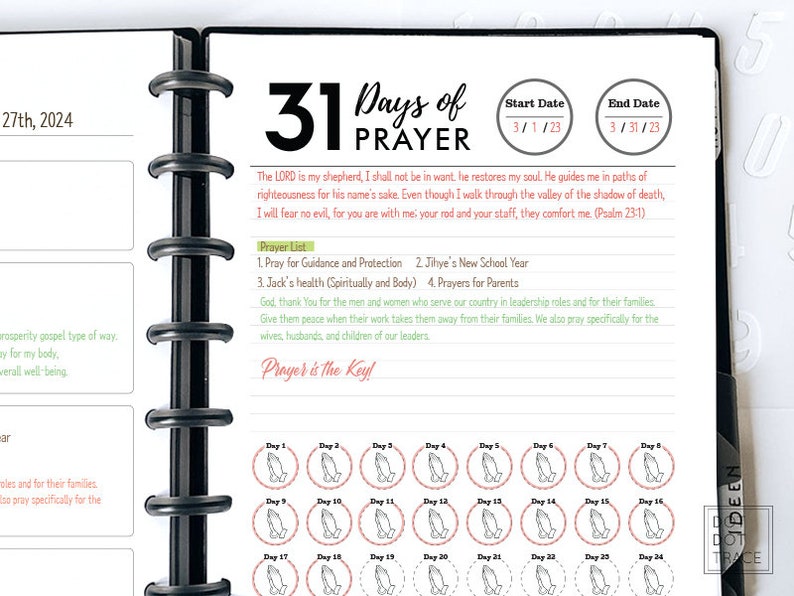 27th, 2024
prosperity gospel type of way.
ay for my body,
verall well-being.
ear
roles and for their families.
also pray specifically for the
31 Days of PRAYER
Start Date
3 / 1 / 23
End Date
3 / 31 / 23
The LORD is my shepherd, I shall not be in want. he restores my soul. He guides me in paths of
righteousness for his name's sake. Even though I walk through the valley of the shadow of death,
I will fear no evil, for you are with me; your rod and your staff, they comfort me. (Psalm 23:1)
Prayer List
1. Pray for Guidance and Protection 2. Jihye's New School Year
3. Jack's health (Spiritually and Body) 4. Prayers for Parents
God, thank You for the men and women who serve our country in leadership roles and for their families.
Give them peace when their work takes them away from their families. We also pray specifically for the
wives, husbands, and children of our leaders.
Prayer is the Key!
Day 1 Day 2 Day 3 Day 4 Day 5 Day 6 Day 7 Day 8
Day 9 Day 10 Day 11 Day 12 Day 13 Day 14 Day 15 Day 16
Day 17 Day 18 Day 19 Day 20 Day 21 Day 22 Day 23 Day 24
IDEEN
DOT
DOT
TRACE